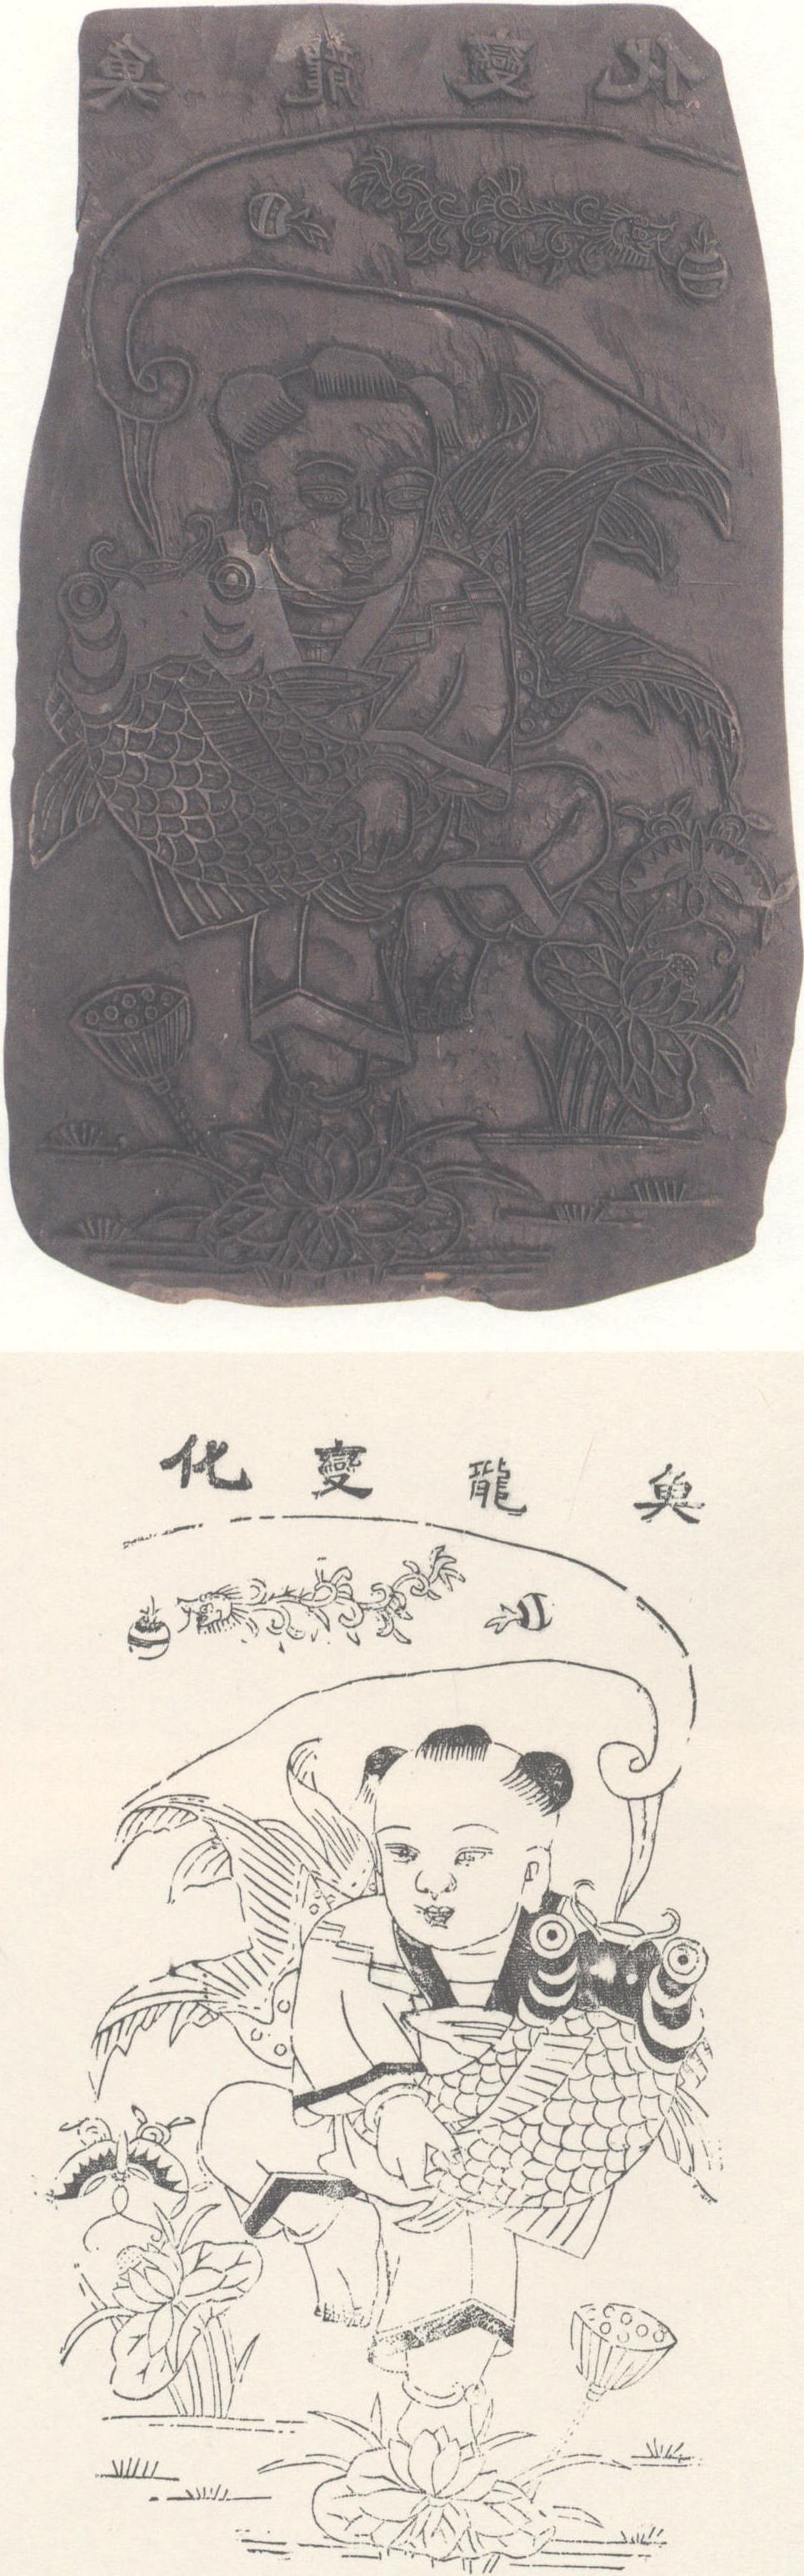 魚龍變化
魚龍變化